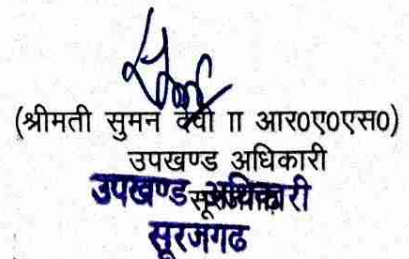 (श्रीमती सुमन देवी II आर0ए0एस0)
उपखण्ड अधिकारी
उपखण्ड अधिकारी
सूरजगढ